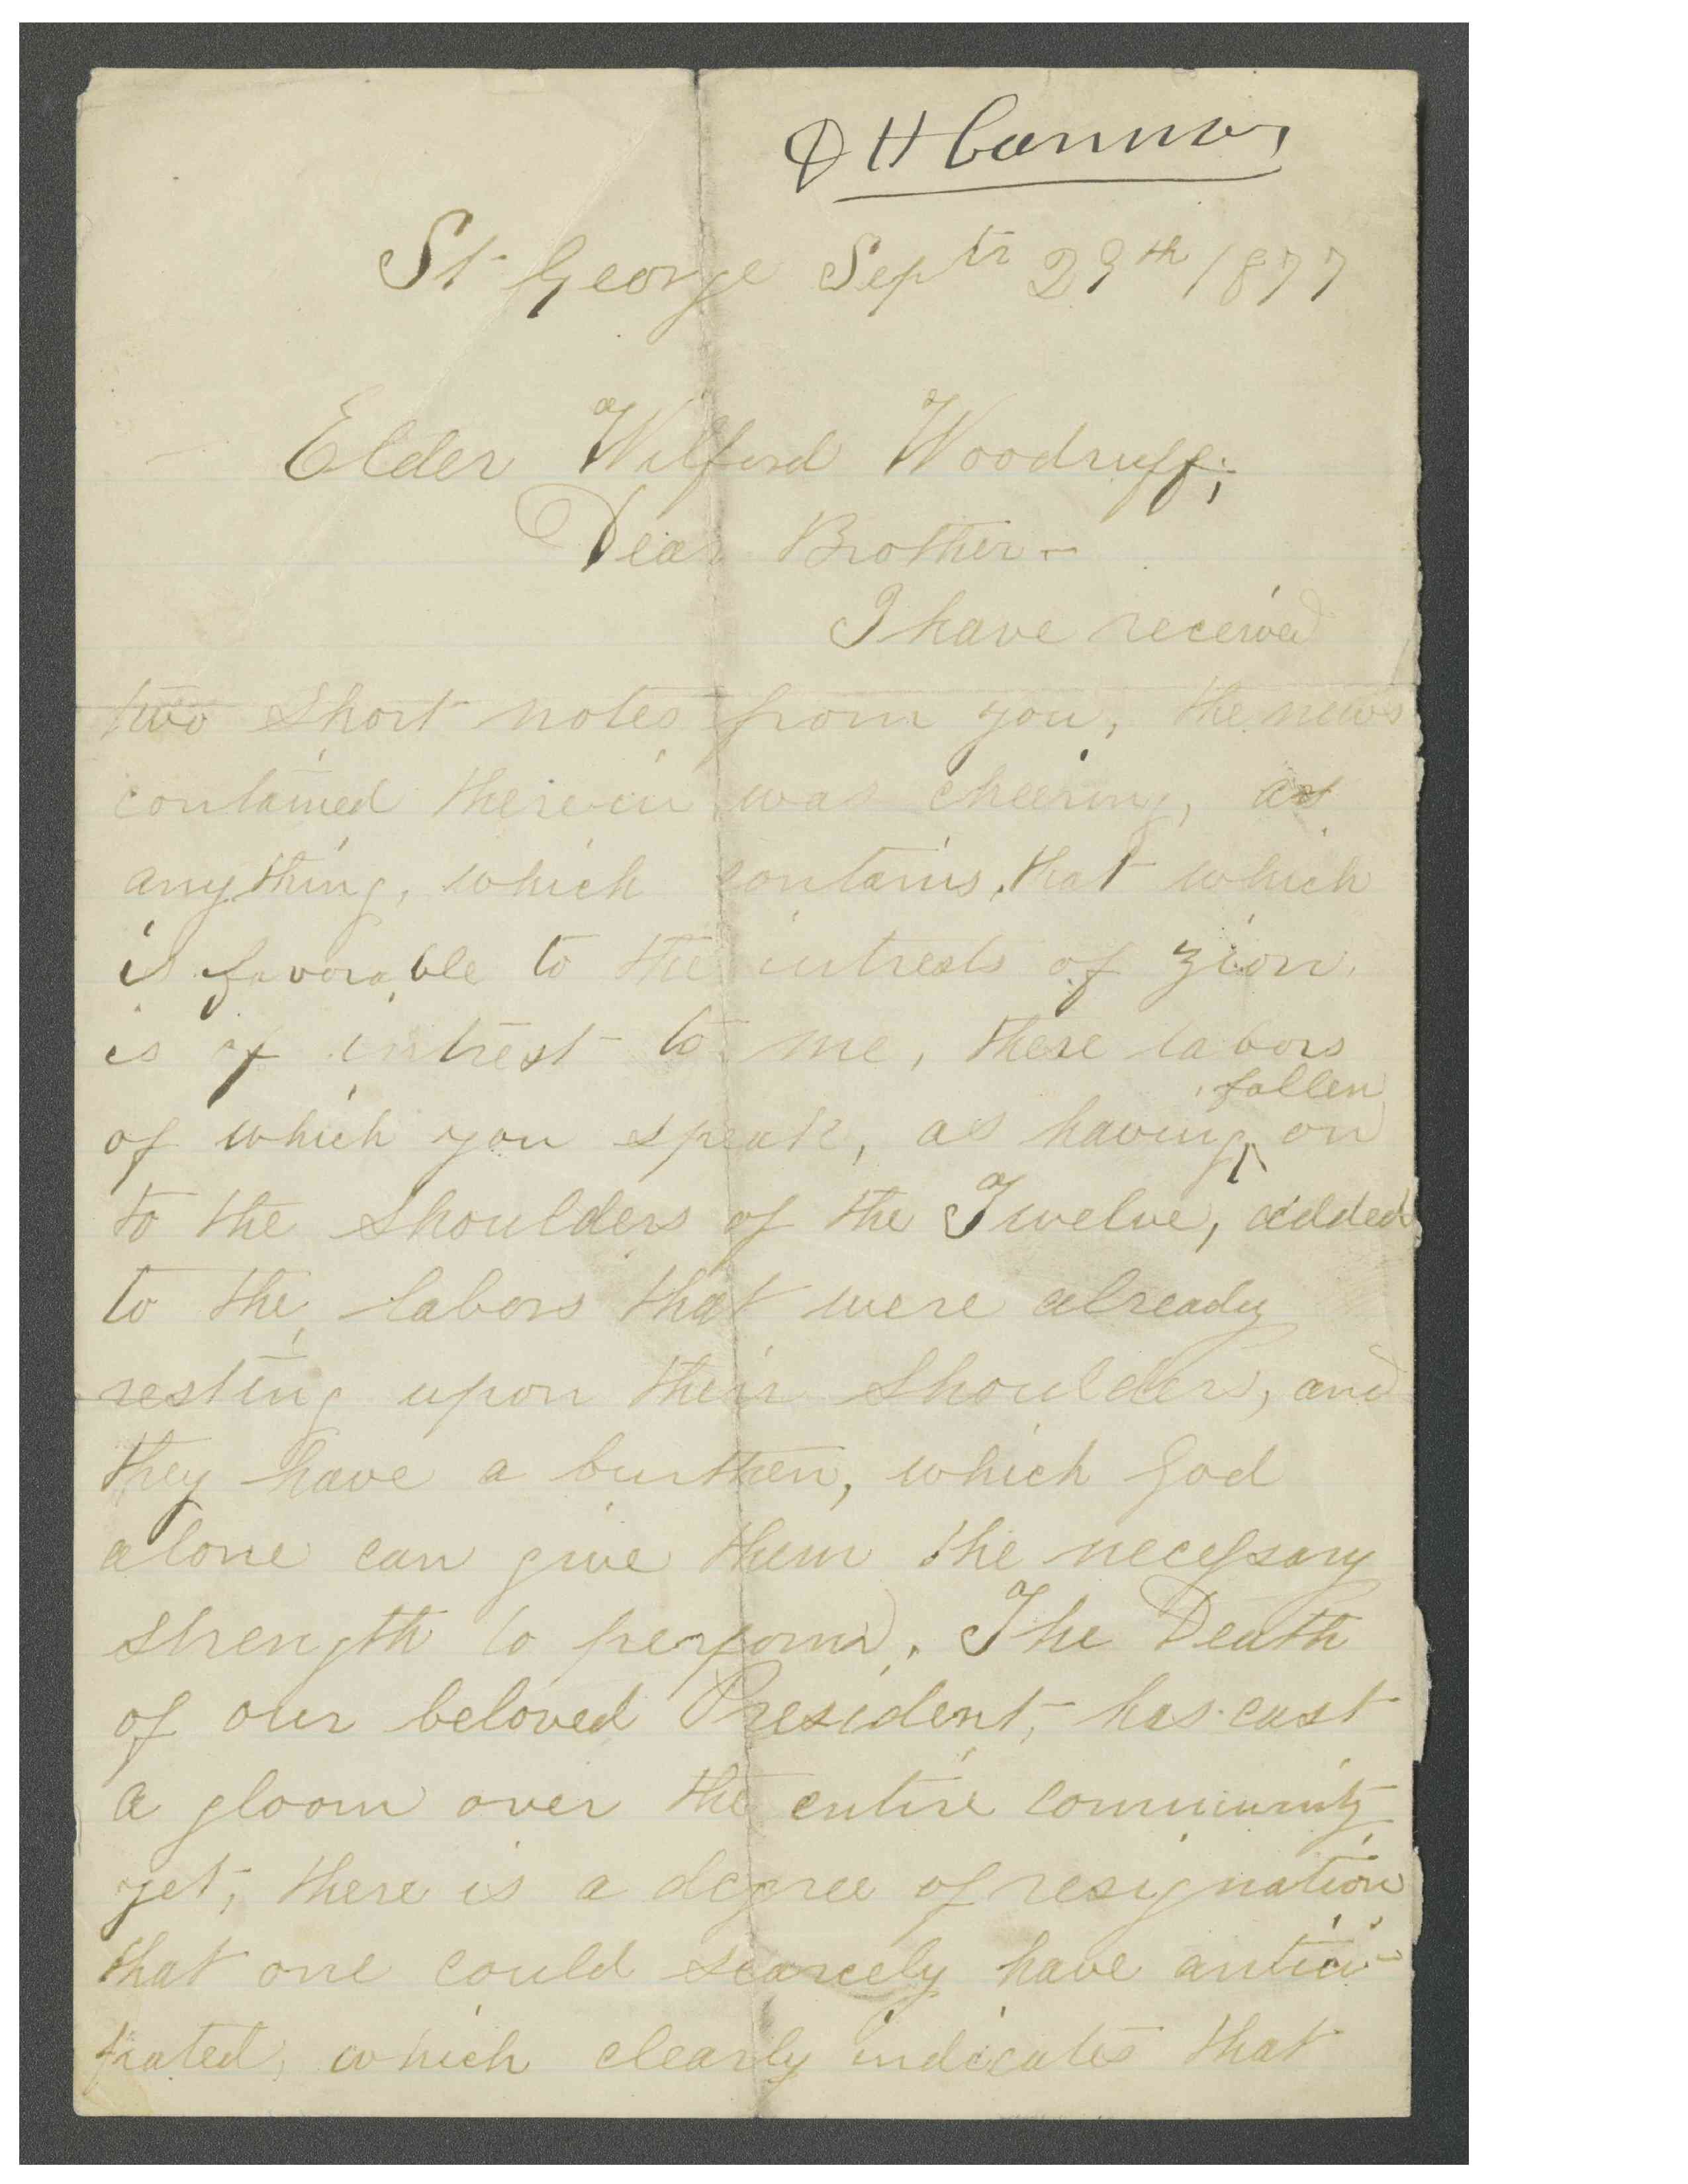 D H Cannon
St George Septr 29th 1877
Elder Wilford Woodruff;
Dear Brother—
I have received
two short notes from you, the news
contained therein was cheering, as
anything, which contains, that which
is favorable to the intrests of Zion.
is of intrest to me, these labors
fallen
of which you speak, as having ^ on
to the shoulders of the Twelve, added
to the labors that were already
resting upon their shoulders, and
they have a burthen, which God
alone can give them the necessary
strength to perform. The Death
of our beloved President, has cast
a gloom over the entire community
yet, there is a degree of resignation
that one could scarcely have antici-
pated, which clearly indicates that